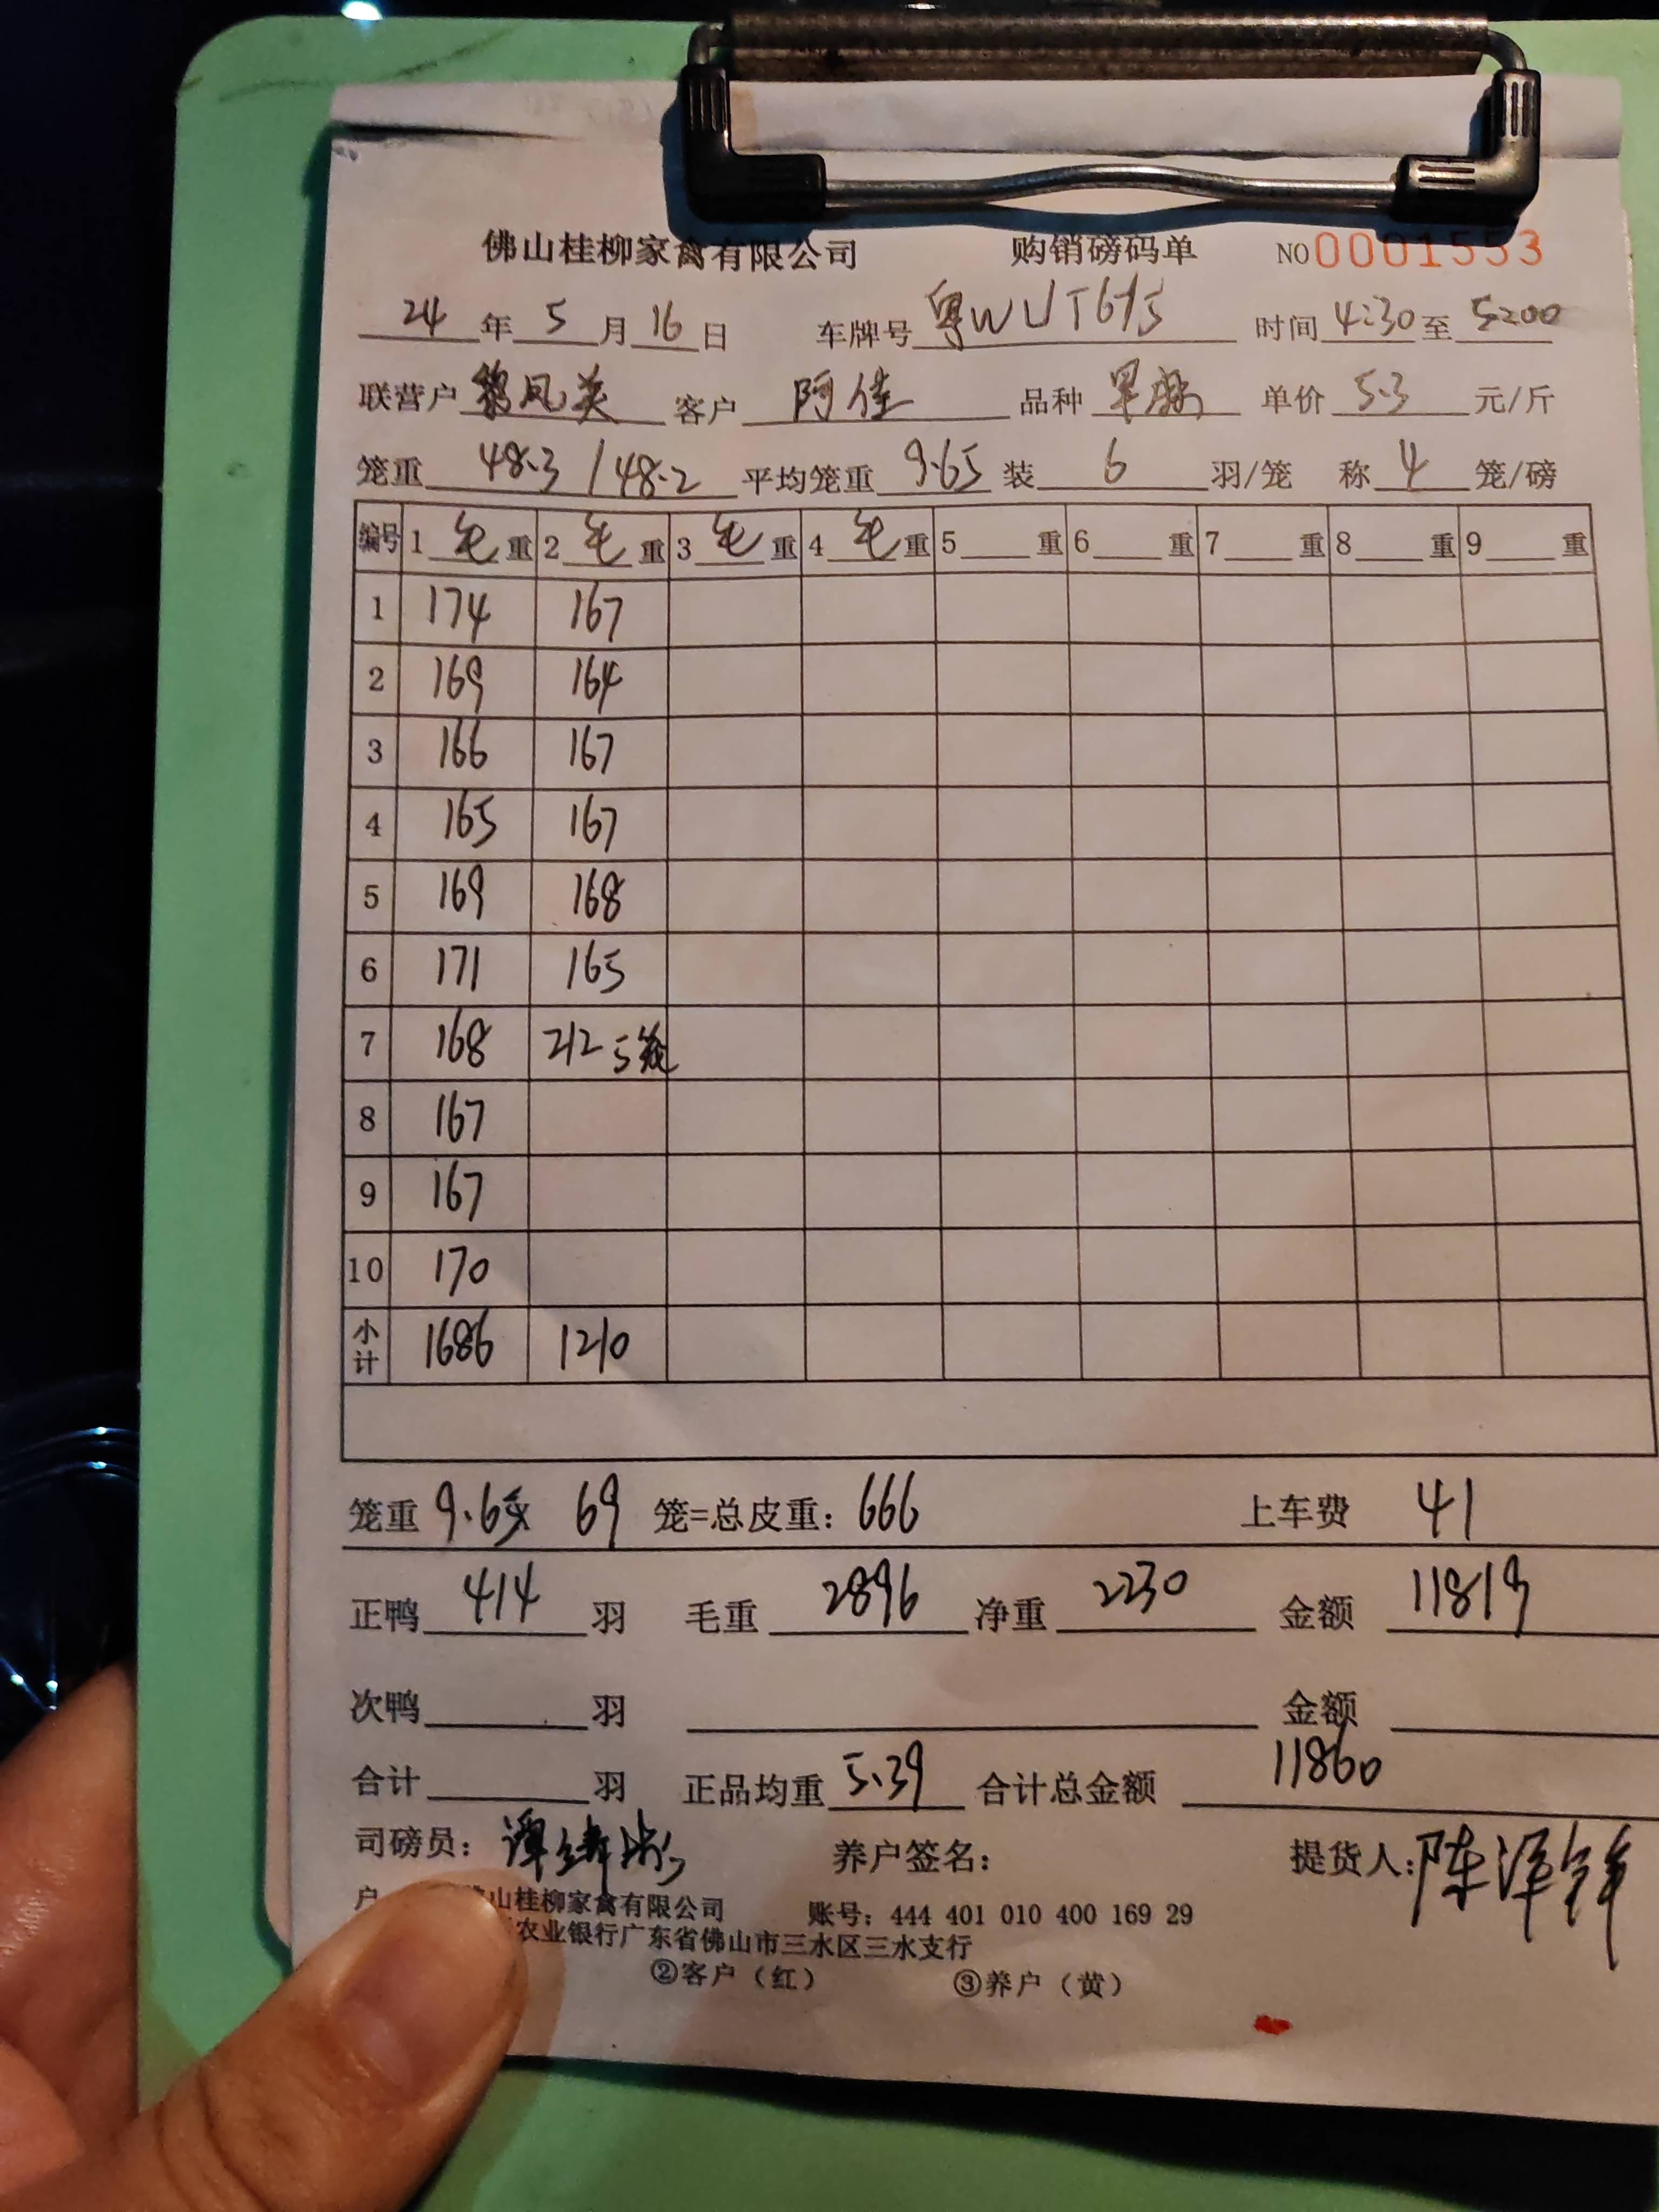 佛山桂柳家禽有限公司 购销磅码单 NO 0001553
24 年 5 月 16 日 车牌号 粤WUT675 时间 4:30 至 5:00
联营户 黎凤英 客户 阿佳 品种 单价 5.3 元/斤
笼重 48.3 / 48.2 平均笼重 9.65 装 6 羽/笼 称 4 笼/磅
编号 1 毛 重 2 毛 重 3 毛 重 4 毛 重 5 重 6 重 7 重 8 重 9 重
1 174 167
2 169 164
3 166 167
4 165 167
5 169 168
6 171 165
7 168 212 5笼
8 167
9 167
10 170
小计 1686 1210
笼重 9.65x 69 笼=总皮重: 666 上车费 41
正鸭 414 羽 毛重 2896 净重 2230 金额 11819
次鸭 羽 金额
合计 羽 正品均重 5.39 合计总金额 11860
司磅员: 养户签名: 提货人: 陈泽锋
户 山桂柳家禽有限公司 账号: 444 401 010 400 169 29
农业银行广东省佛山市三水区三水支行
②客户(红) ③养户(黄)